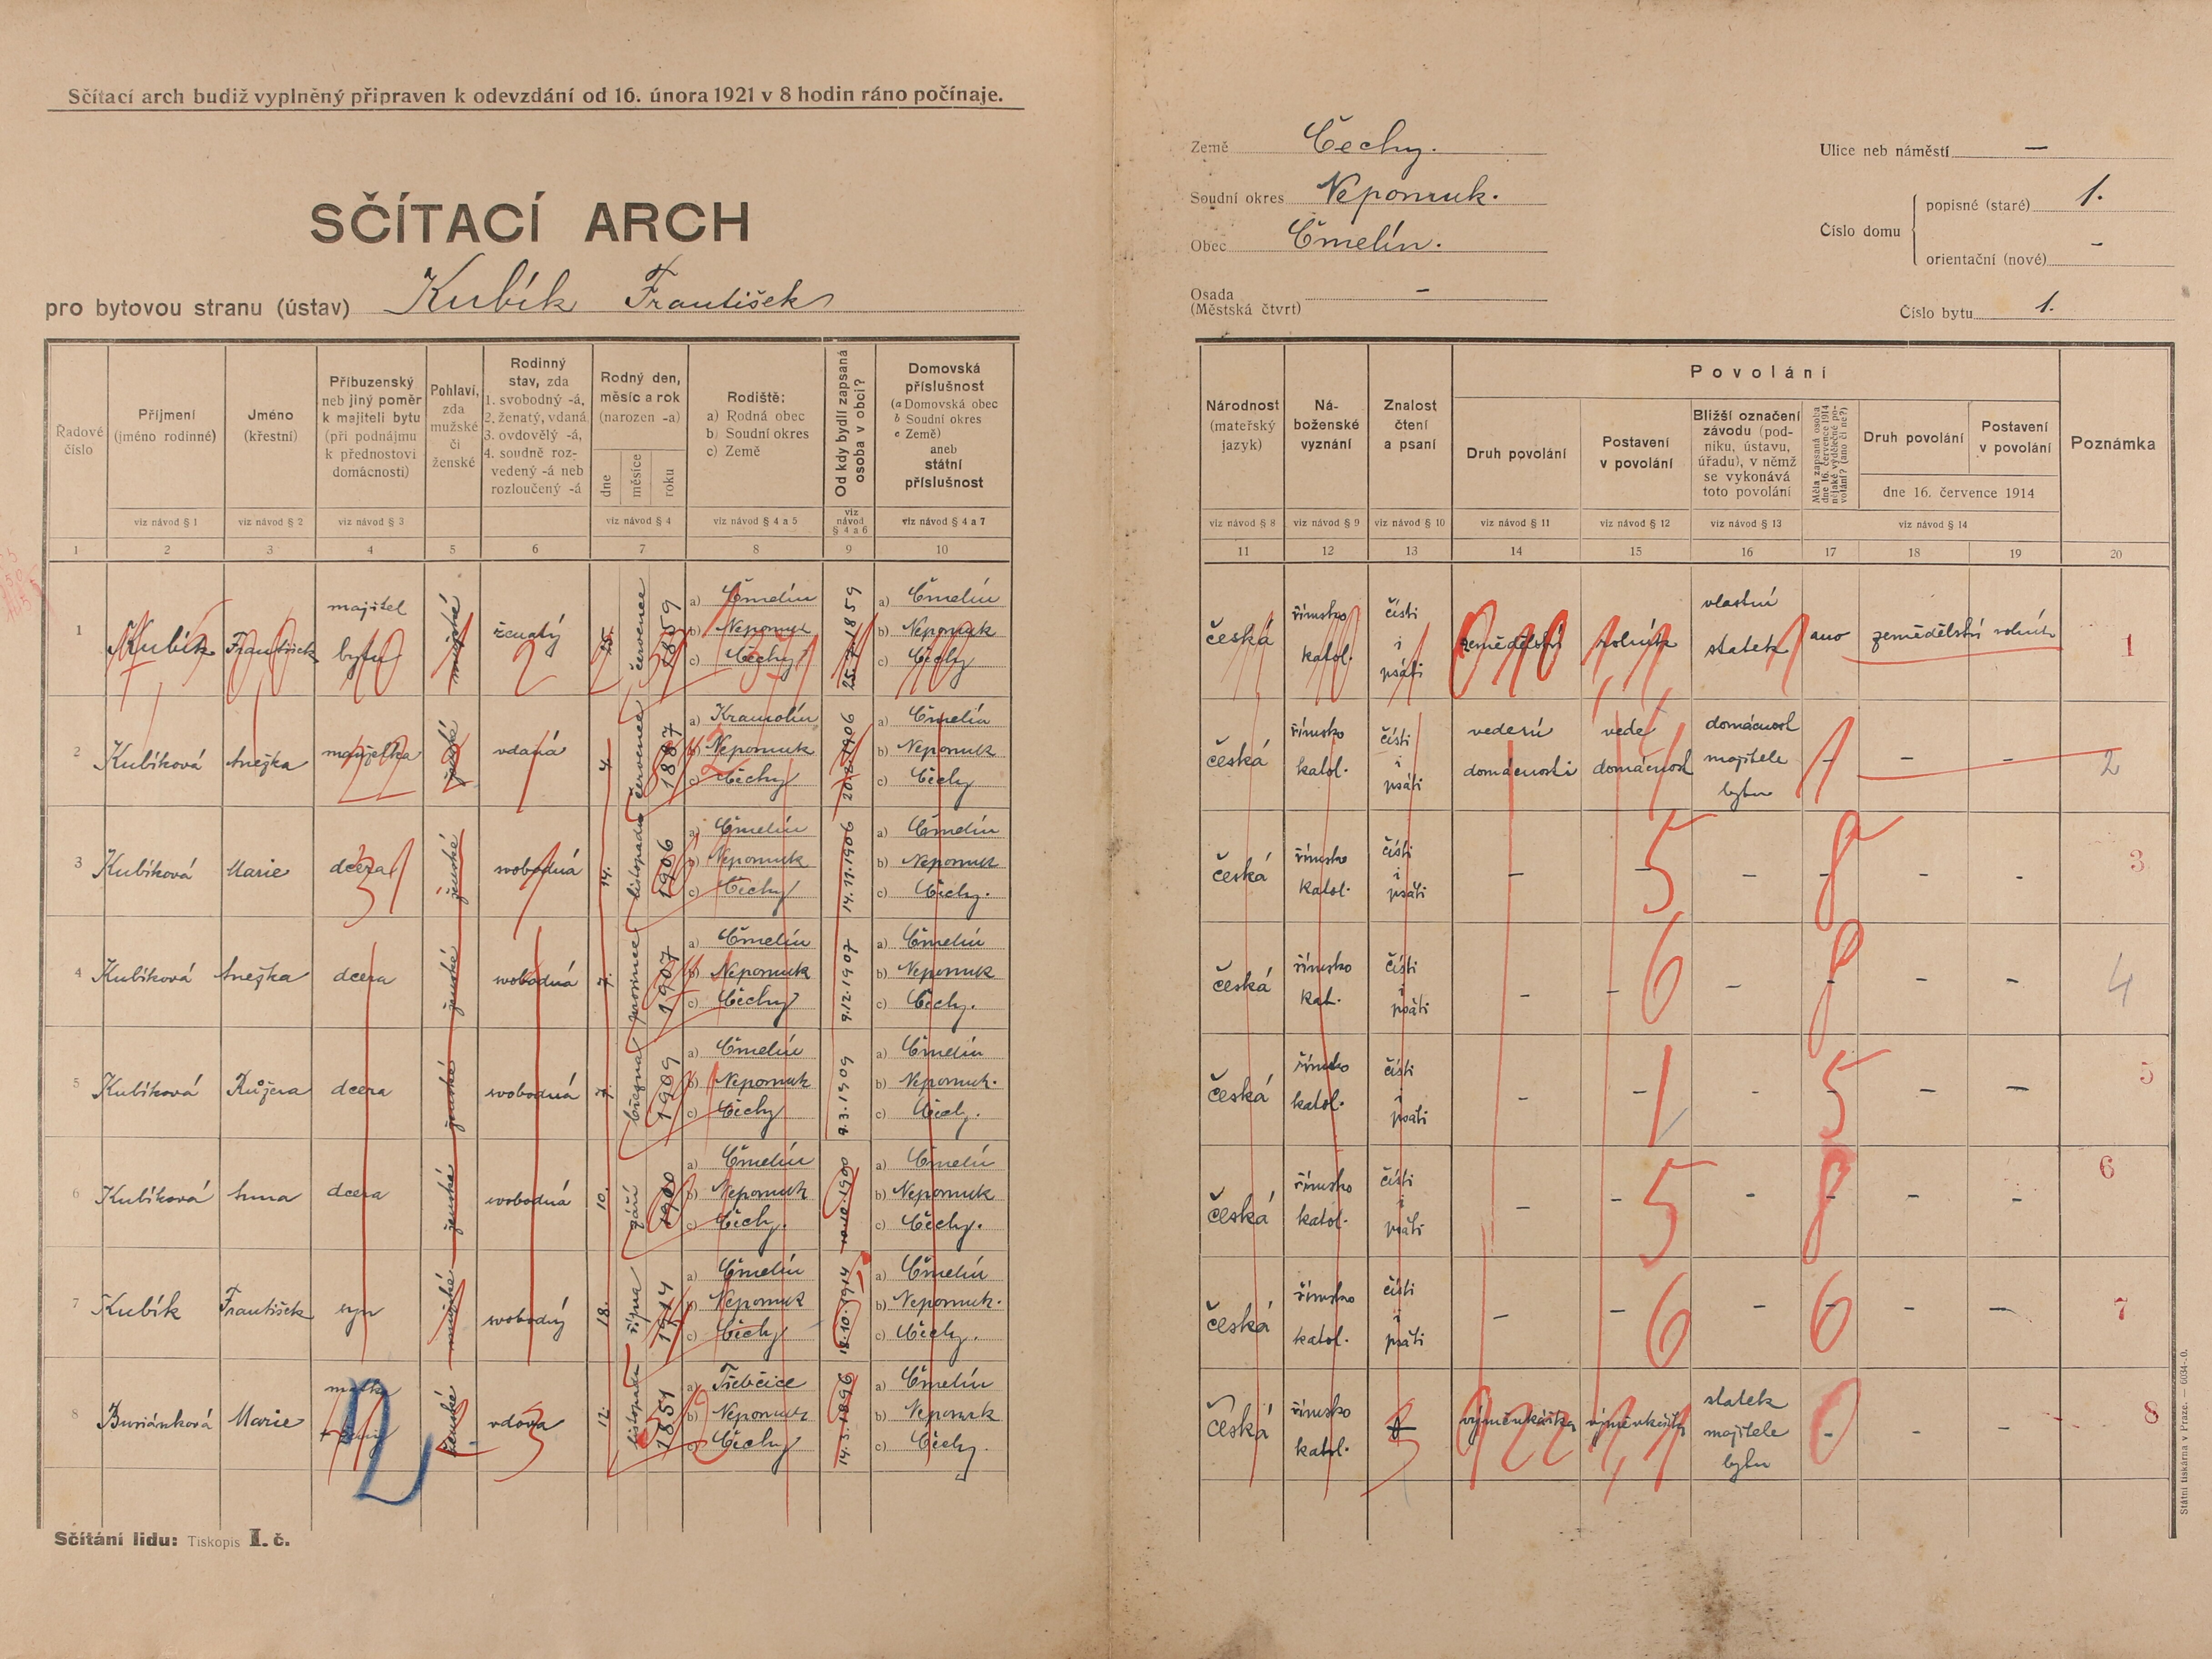 Sčítací arch budiž vyplněný připraven k odevzdání od 16. února 1921 v 8 hodin ráno počínaje.
SČÍTACÍ ARCH
pro bytovou stranu (ústav) Kubík František
Země Čechy.
Soudní okres Nepomuk.
Obec Čmelín.
Osada –
(Městská čtvrt)
Ulice neb náměstí –
Číslo domu
popisné (staré) 1.
orientační (nové) –
Číslo bytu 1.
Řadové číslo
Příjmení (jméno rodinné)
Jméno (křestní)
Příbuzenský neb jiný poměr k majiteli bytu (při podnájmu k přednostovi domácnosti)
Pohlaví, zda mužské či ženské
Rodinný stav, zda 1. svobodný -á, 2. ženatý, vdaná 3. ovdovělý -á, 4. soudně rozvedený -á neb rozloučený -á
Rodný den, měsíc a rok (narozen -a)
dne měsíce roku
Rodiště: a) Rodná obec b) Soudní okres c) Země
Od kdy bydlí zapsaná osoba v obci?
Domovská příslušnost (a Domovská obec b Soudní okres c Země) aneb státní příslušnost
viz návod § 1 viz návod § 2 viz návod § 3 viz návod § 4 viz návod § 4 a 5 viz návod § 4 a 6 viz návod § 4 a 7
1 2 3 4 5 6 7 8 9 10
Národnost (mateřský jazyk)
Náboženské vyznání
Znalost čtení a psaní
Povolání
Druh povolání
Postavení v povolání
Bližší označení závodu (podniku, ústavu, úřadu), v němž se vykonává toto povolání
Měla zapsaná osoba dne 16. července 1914 nějaké výdělečné povolání? (ano či ne?)
Druh povolání
Postavení v povolání
dne 16. července 1914
Poznámka
viz návod § 8 viz návod § 9 viz návod § 10 viz návod § 11 viz návod § 12 viz návod § 13 viz návod § 14
11 12 13 14 15 16 17 18 19 20
1 Kubík František majitel bytu mužské ženatý 25. července 1859 a) Čmelín b) Nepomuk c) Čechy 25.7.1859 a) Čmelín b) Nepomuk c) Čechy
česká římsko katol. čísti i psáti zemědělství rolník vlastní statek ano zemědělství rolník 1
2 Kubíková Anežka manželka ženské vdaná 4. červenec 1887 a) Kramolín b) Nepomuk c) Čechy a) Čmelín b) Nepomuk c) Čechy
česká římsko katol. čísti i psáti vedení domácnosti vede domácnost domácnost majitele bytu – – – 2
3 Kubíková Marie dcera ženské svobodná 14. listopadu 1906 a) Čmelín b) Nepomuk c) Čechy 14.11.1906 a) Čmelín b) Nepomuk c) Čechy.
česká římsko katol. čísti i psáti – – – – – – 3
4 Kubíková Anežka dcera ženské svobodná 7. prosince 1907 a) Čmelín b) Nepomuk c) Čechy 9.12.1907 a) Čmelín b) Nepomuk c) Čechy.
česká římsko kat. čísti i psáti – – – – – – 4
5 Kubíková Růžena dcera ženské svobodná 7. března 1909 a) Čmelín b) Nepomuk c) Čechy 9.3.1909 a) Čmelín b) Nepomuk. c) Čechy.
česká římsko katol. čísti i psáti – – – – – – 5
6 Kubíková Anna dcera ženské svobodná 10. září 1900 a) Čmelín b) Nepomuk c) Čechy. a) Čmelín b) Nepomuk c) Čechy.
česká římsko katol. čísti i psáti – – – – – – 6
7 Kubík František syn mužské svobodný 18. října 1914 a) Čmelín b) Nepomuk c) Čechy 18.10.1914 a) Čmelín b) Nepomuk. c) Čechy.
česká římsko katol. čísti i psáti – – – – – – 7
8 Buriánková Marie matka ženské vdova 12. listopadu 1851 a) Třebčice b) Nepomuk c) Čechy 14.5.1896 a) Čmelín b) Nepomuk c) Čechy.
Česká římsko katol. výměnkářka výměnkářka statek majitele bytu – – – 8
Sčítání lidu: Tiskopis I. č.
Státní tiskárna v Praze. — 6034-0.